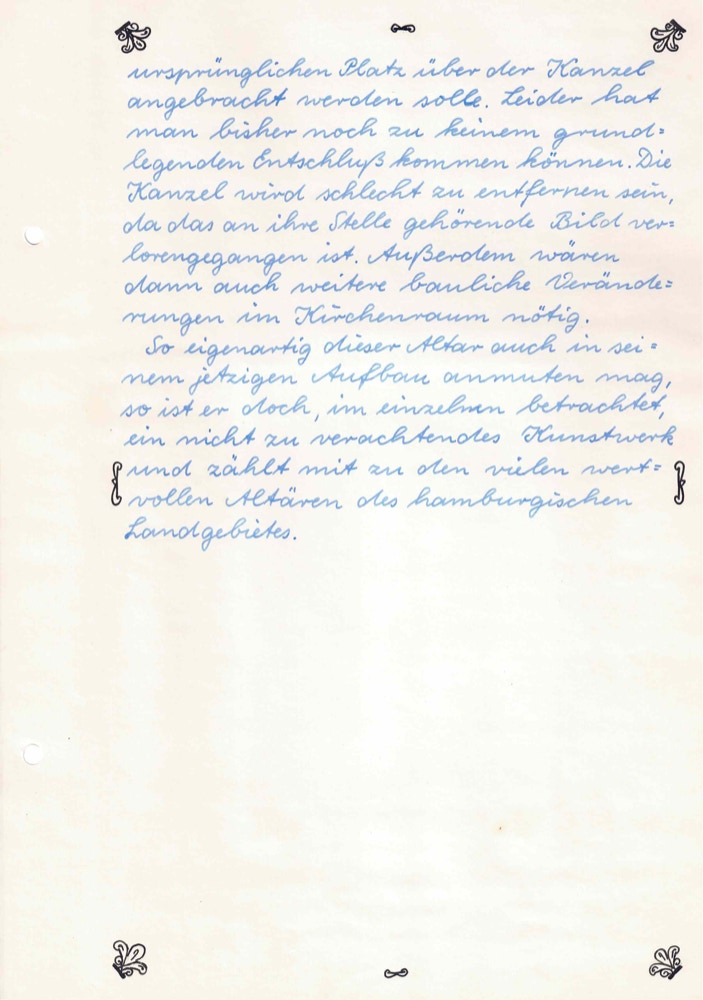 ursprünglichen Platz über der Kanzel
angebracht werden solle. Leider hat
man bisher noch zu keinem grund=
legenden Entschluß kommen können. Die
Kanzel wird schlecht zu entfernen sein,
da das an ihre Stelle gehörende Bild ver=
lorengegangen ist. Außerdem wären
dann auch weitere bauliche Verände=
rungen im Kirchenraum nötig.
So eigenartig dieser Altar auch in sei=
nem jetzigen Aufbau anmuten mag,
so ist er doch, im einzelnen betrachtet,
ein nicht zu verachtendes Kunstwerk
und zählt mit zu den vielen wert=
vollen Altären des hamburgischen
Landgebietes.